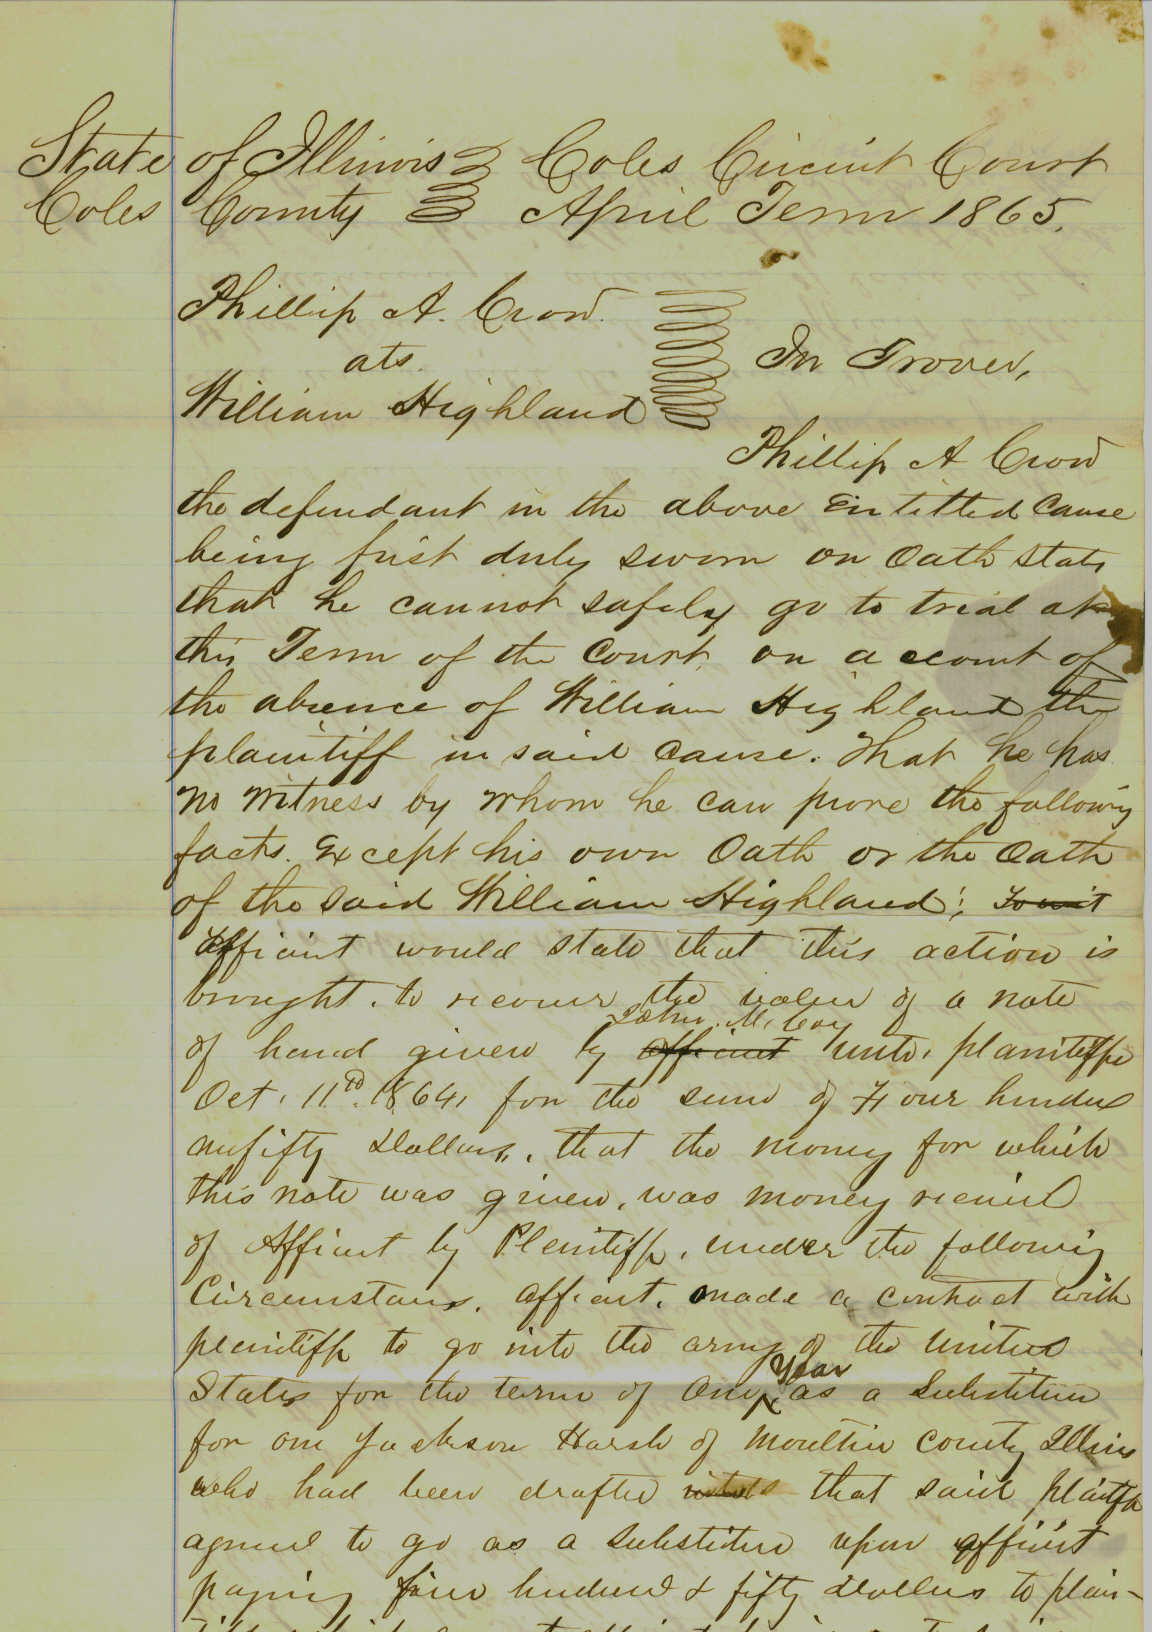 State of Illinois Coles Circuit Court
Coles County April Term 1865.
Phillip A. Crow.
ats.
William Highland
In Trover,
Phillip A Crow
the defendant in the above Entitled Cause
being first duly sworn on Oath states
that he cannot safely go to trial at
this Term of the Court, on account of
the absence of William Highland the
plaintiff in said cause. That he has
no witness by whom he can prove the following
facts. Except his own Oath or the Oath
of the said William Highland; To wit
affiant would state that this action is
brought to recover the value of a note
John McCoy
of hand given by affiant unto plaintiff
Oct. 11th 1864, for the sum of Four hundred
fifty Dollars, that the money for which
this note was given, was money received
of Affiant by Plaintiff, under the following
Circumstances, affiant made a contract with
plaintiff to go into the army of the United
year
States for the term of One as a Substitute
for one Jackson Harsh of Moultrie County Illinois
who had been drafted that said plaintiff
agreed to go as a substitute upon affiant
paying five hundred & fifty dollars to plain-